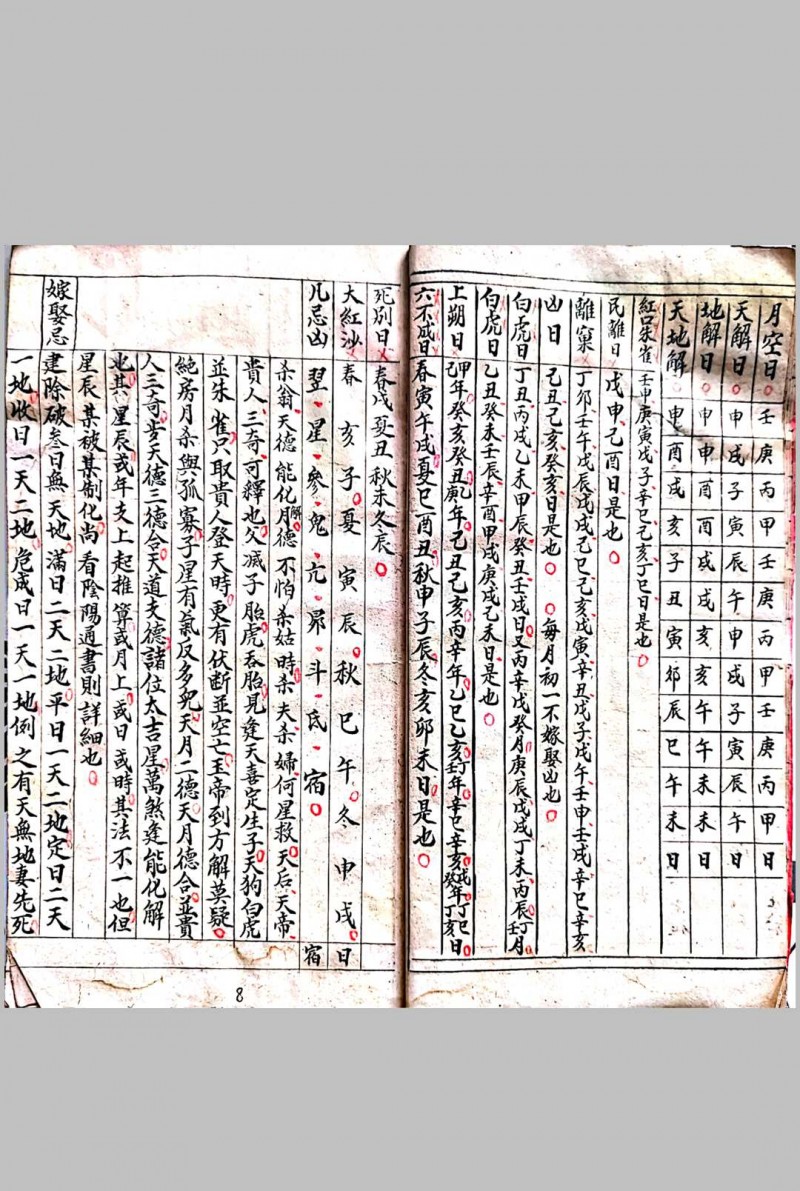 月空日 壬庚丙甲壬庚丙甲壬庚丙甲日
天解日 申戌子寅辰午申戌子寅辰午日
地解日 申申酉酉戌戌亥亥午午未未日
天地解 申酉戌亥子丑寅卯辰巳午未日
紅口朱雀 壬申庚寅戊子辛巳己亥丁巳日是也
民離日 戊申己酉日是也
離窠 丁卯壬午戊辰戊戌己巳己亥戊寅辛丑戊子戊午壬申壬戌辛巳辛亥
凶日 己丑己亥癸亥日是也 每月初一不嫁娶凶也
白虎日 丁丑丙戌乙未甲辰癸丑壬戌日又丙辛戊癸月庚辰戊戌丁未丙辰丁壬月
白虎日 乙丑癸未壬辰辛酉甲戌庚戌己未日是也
上朔日 甲己年癸亥癸丑乙庚年己丑己亥丙辛年乙巳乙亥丁壬年辛巳辛亥戊癸年丁巳丁亥日
六不成日 春寅午戌夏巳酉丑秋申子辰冬亥卯未日是也
死別日 春戌夏丑秋未冬辰
大紅沙 春亥子夏寅辰秋巳午冬申戌日
凡忌凶 翌星參鬼亢昴斗氐宿 宿
杀翁天德能化解月德不怕杀姑時杀夫杀婦何星救天后天帝
貴人三奇可釋也父滅子胎虎吞胎見逢天喜定生子天狗白虎
並朱雀只取貴人登天時更有伏断並空亡玉帝到方解莫疑
絕房月杀與孤寡子星有氣反多兒天月二德天月德合並貴
人三奇步天德三德合天道支德諸位太吉星萬煞逢能化解
也其星辰或年支上起推算或月上或日或時其法不一也但
星辰某被某制化尚看陰陽通書則詳細也
嫁娶忌 建除破叁日無天地滿日二天二地平日一天二地定日二天
一地收日一天二地危成日一天一地例之有天無地妻先死
8